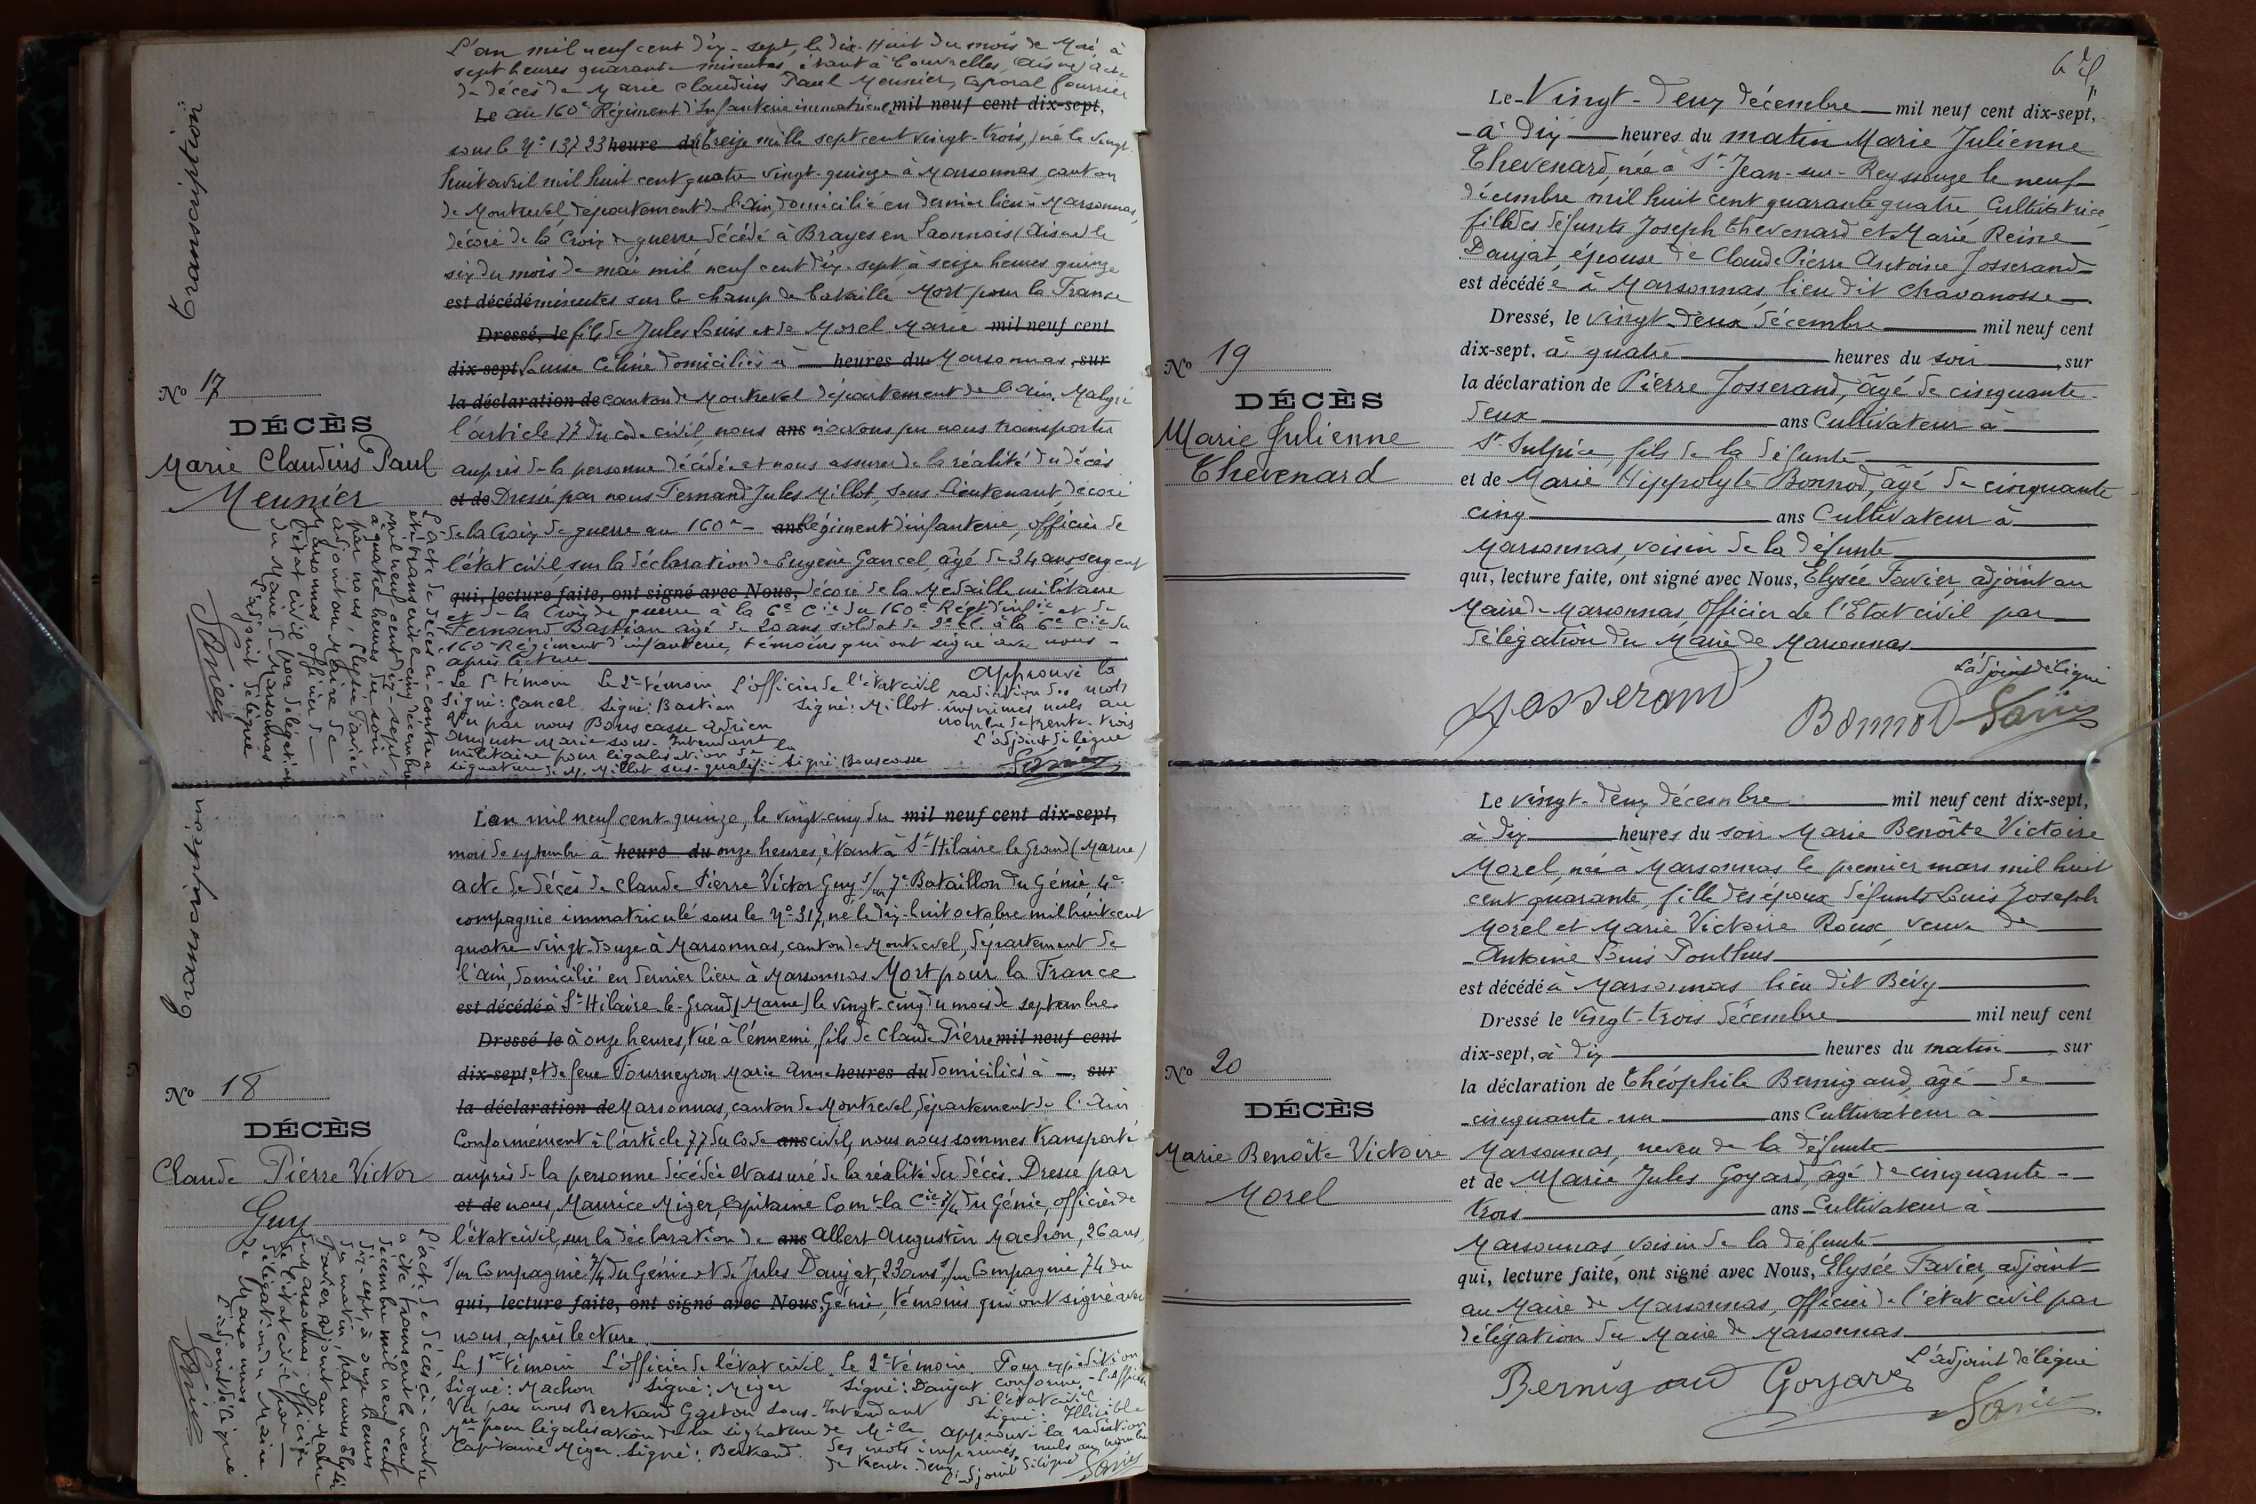 Transcription
N° 17
DÉCÈS
Marie Claudius Paul
Meunier
L'acte de décès ci-contre
a été transcrit le cinq décembre
mil neuf cent dix-sept,
à quatre heures du soir,
par nous, Elysée Favier,
adjoint au Maire de
Marsonnas, officier de
l'état civil par délégation
du Maire de Marsonnas
L'adjoint délégué
Favier
L'an mil neuf cent dix-sept, le dix-huit du mois de Mai, à
sept heures quarante minutes, étant à Courcelles, (Aisne) acte
de décès de Marie Claudius Paul Meunier, Caporal fourrier
Le au 160e Régiment d'Infanterie immatriculé mil neuf cent dix-sept,
sous le N° 13723 heure du (treize mille sept cent vingt-trois,) né le vingt-
huit avril mil huit cent quatre vingt-quinze à Marsonnas, canton
de Montrevel, département de l'Ain, domicilié en dernier lieu à Marsonnas,
décoré de la Croix de guerre décédé à Brayes en Laonnois (Aisne) le
six du mois de mai mil neuf cent dix-sept à seize heures quinze
est décédé minutes sur le champ de bataille Mort pour la France
Dressé, le fils de Jules Louis et de Morel Marie mil neuf cent
dix-sept Louise Céline domiciliés à heures du Marsonnas, sur
la déclaration de canton de Montrevel département de l'Ain. Malgré
l'article 77 du code civil, nous ans n'avons pu nous transporter
auprès de la personne décédée et nous assurer de la réalité du décès
et de Dressé par nous Fernand Jules Millot, sous-lieutenant, décoré
de la Croix de guerre au 160e ans Régiment d'infanterie, officier de
l'état civil, sur la déclaration de Eugène Gancel, âgé de 34 ans, sergent
qui, lecture faite, ont signé avec Nous, décoré de la Médaille militaire
et de la Croix de guerre à la 6e Cie du 160e Régt d'infie et de
Fernand Bastian âgé de 20 ans soldat de 2e cl. à la 6e Cie du
160e Régiment d'infanterie, témoins qui ont signé avec nous
après lecture
Le 1er témoin Le 2e témoin L'officier de l'état civil
Signé: Gancel Signé: Bastian Signé: Millot
Vu par nous Bouscasse Adrien
Auguste Marie sous-Intendant
militaire pour légalisation de la
signature de M. Millot sus-qualifié Signé: Bouscasse
Approuvé la
radiation des mots
imprimés nuls au
nombre de trente-trois
L'adjoint délégué
Favier
Transcription
N° 18
DÉCÈS
Claude Pierre Victor
Guy
L'acte de décès ci-contre
a été transcrit le neuf
décembre mil neuf cent
dix-sept, à onze heures
du matin, par nous Elysée
Favier adjoint au Maire
de Marsonnas, officier
de l'état civil par
délégation du Maire
de Marsonnas
L'adjoint délégué
Favier
L'an mil neuf cent-quinze, le vingt-cinq du mil neuf cent dix-sept,
mois de septembre à heure du onze heures, étant à St Hilaire le Grand (Marne)
acte de décès de Claude Pierre Victor Guy s/m 7e Bataillon du Génie, 4e
compagnie immatriculé sous le N° 317, né le dix-huit octobre mil huit cent
quatre vingt-douze à Marsonnas, canton de Montrevel, département de
l'Ain, domicilié en dernier lieu à Marsonnas Mort pour la France
est décédé à St Hilaire-le-Grand (Marne) le vingt-cinq du mois de septembre
Dressé le à onze heures, tué à l'ennemi, fils de Claude Pierre mil neuf cent
dix-sept, et de feue Tourneyron Marie Anne heures du domiciliés à , sur
la déclaration de Marsonnas, canton de Montrevel, département de l'Ain
Conformément à l'article 77 du Code ans civil, nous nous sommes transporté
auprès de la personne décédée et assuré de la réalité du décès. Dressé par
et de nous, Maurice Miger, Capitaine Comt la Cie 7/4 du Génie, officier de
l'état civil, sur la déclaration de ans Albert Augustin Machon, 26 ans,
s/m Compagnie 7/4 du Génie et de Jules Daujat, 23 ans, s/m Compagnie 7/4 du
qui, lecture faite, ont signé avec Nous, Génie, témoins qui ont signé avec
nous, après lecture.
Le 1er témoin L'officier de l'état civil Le 2e témoin Pour expédition
Signé: Machon Signé: Miger Signé: Daujat conforme, L'officier
de l'état civil
Signé: Illisible
Vu par nous Bertrand Gaston sous-Intendant
Mre pour légalisation de la signature de Mr le
Capitaine Miger. Signé: Bertrand.
Approuvé la radiation
des mots imprimés nuls au nombre
de trente-deux
L'adjoint délégué Favier
N° 19
DÉCÈS
Marie Julienne
Thevenard
Le Vingt-deux décembre mil neuf cent dix-sept,
à dix heures du matin Marie Julienne
Thevenard, née à St-Jean-sur-Reyssouze le neuf
décembre mil huit cent quarante quatre, Cultivatrice,
fille des défunts Joseph Thevenard et Marie Reine
Daujat, épouse de Claude Pierre Antoine Josserand
est décédée à Marsonnas, lieu dit Chavanosse
Dressé, le vingt-deux décembre mil neuf cent
dix-sept. à quatre heures du soir, sur
la déclaration de Pierre Josserand, âgé de cinquante-
deux ans Cultivateur à
St-Sulpice, fils de la défunte
et de Marie Hippolyte Bonnod, âgé de cinquante
cinq ans Cultivateur à
Marsonnas, voisin de la défunte
qui, lecture faite, ont signé avec Nous, Elysée Favier, adjoint au
Maire de Marsonnas, Officier de l'Etat civil par
délégation du Maire de Marsonnas
L'adjoint délégué
Josserand Bonnod Favier
N° 20
DÉCÈS
Marie Benoîte Victoire
Morel
Le vingt-deux décembre mil neuf cent dix-sept,
à dix heures du soir Marie Benoîte Victoire
Morel, née à Marsonnas le premier mars mil huit
cent quarante, fille des époux défunts Louis Joseph
Morel et Marie Victoire Roux, veuve de
Antoine Louis Ponthus
est décédé à Marsonnas lieu dit Bévy
Dressé le vingt-trois décembre mil neuf cent
dix-sept, à dix heures du matin, sur
la déclaration de Théophile Bernigaud, âgé de
cinquante-un ans Cultivateur à
Marsonnas, neveu de la défunte
et de Marie Jules Goyard, âgé de cinquante-
trois ans Cultivateur à
Marsonnas, voisin de la défunte
qui, lecture faite, ont signé avec Nous, Elysée Favier, adjoint
au Maire de Marsonnas, Officier de l'état civil par
délégation du Maire de Marsonnas
L'adjoint délégué
Bernigaud Goyard Favier